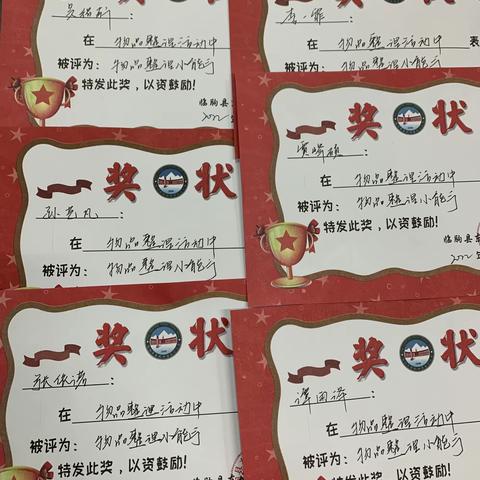 在 物品整理活动中
被评为：物品整理小能手
特发此奖，以资鼓励！
临朐县
2022
在 物品整理活动中 表
被评为：物品整理小能手
特发此奖，以资鼓励！
临朐县
2022
奖 状
孙艺凡：
在 物品整理活动中
被评为：物品整理小能手
特发此奖，以资鼓励！
奖 状
贾峰硕：
在 物品整理活动中
被评为：物品整理小能手
特发此奖，以资鼓励！
临朐县东
2022
奖 状
张依诺：
在 物品整理活动中
被评为：物品整理小能手
特发此奖，以资鼓励！
奖 状
谭雨泽：
在 物品整理活动中
被评为：物品整理小能手
特发此奖，以资鼓励！